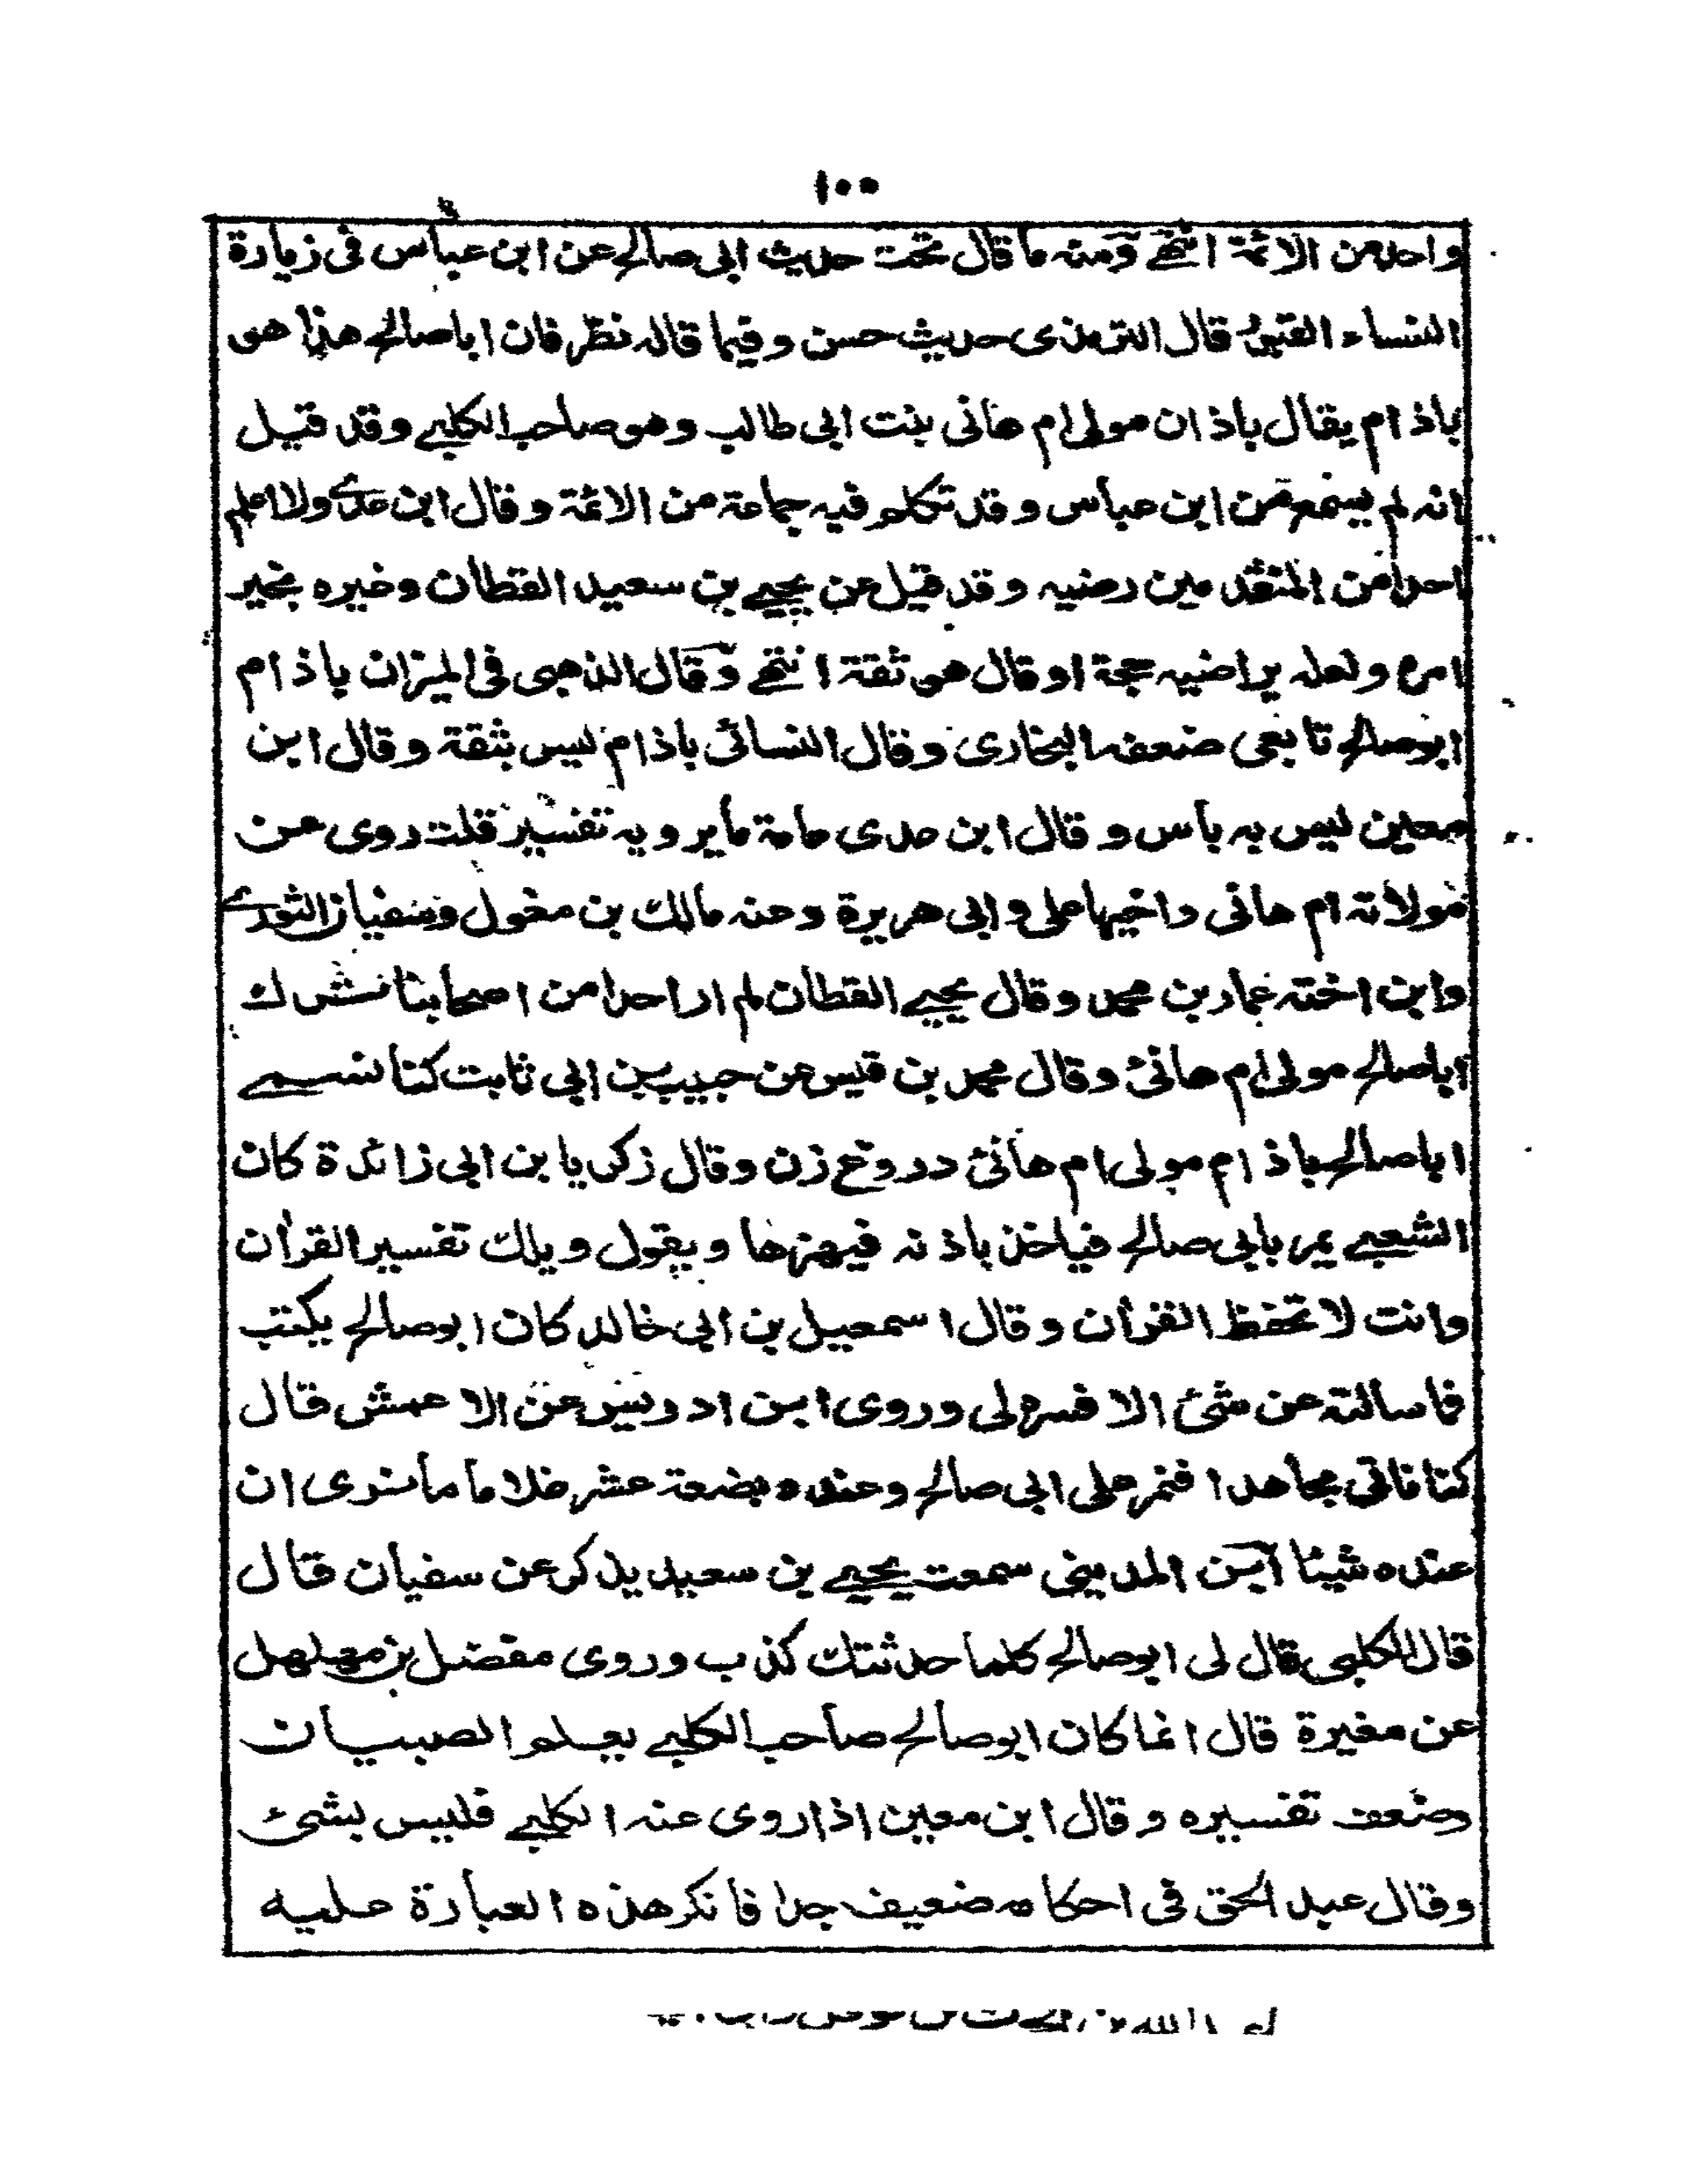 ١٠٠
واحد من الائمة انتهى ومنه ما قال تحت حديث ابي صالح عن ابن عباس في زيارة
النساء القبور قال الترمذى حديث حسن وفيما قاله نظر فان ابا صالح هذا هو
باذام يقال باذان مولى ام هانى بنت ابى طالب وهو صاحب الكلبے وقد قيل
انه لم يسمع من ابن عباس وقد تكلم فيه جماعة من الائمة وقال ابن عدے ولا اعلم
احدا من المتقدمين رضيه وقد قيل عن يحيے بن سعيد القطان وغيره بخير
امره ولعله يراضيه حجة او قال هو ثقة انتهے وقال الذهبى فى الميزان باذام
ابو صالح تابعى ضعفه البخارى وقال النسائى باذام ليس بثقة وقال ابن
معين ليس به بأس وقال ابن عدى عامة ما يرويه تفسير قلت روى عن
مولاته ام هانى واخيها على وابى هريرة وعنه مالك بن مغول وسفيان الثورے
وابن اخته عمار بن محمد وقال يحيے القطان لم ار احدا من اصحابنا ترك
ابا صالح مولى ام هانئ وقال محمد بن قيس عن حبيب بن ابى ثابت كنا نسمے
ابا صالح باذام مولى ام هانئ دروغ زن وقال زكريا بن ابى زائدة كان
الشعبے يمر بابى صالح فياخذ باذنه فيهزها ويقول ويلك تفسير القرأن
وانت لا تحفظ القرأن وقال اسمعيل بن ابى خالد كان ابو صالح يكتب
فما سالته عن شئ الا فسره لى وروى ابن ادريس عن الاعمش قال
كنا ناتى مجاهدا فنمر على ابى صالح وعنده بضعة عشر غلاما ما نرى ان
عنده شيئا ابن المدينى سمعت يحيے بن سعيد يذكر عن سفيان قال
قال الكلبى قال لى ابو صالح كلما حدثتك كذب وروى مفضل بن مهلهل
عن مغيرة قال انما كان ابو صالح صاحب الكلبے يعلم الصبيان
وضعف تفسيره وقال ابن معين اذا روى عنه الكلبے فليس بشئ
وقال عبد الحق فى احكامه ضعيف جدا فانكر هذه العبارة عليه